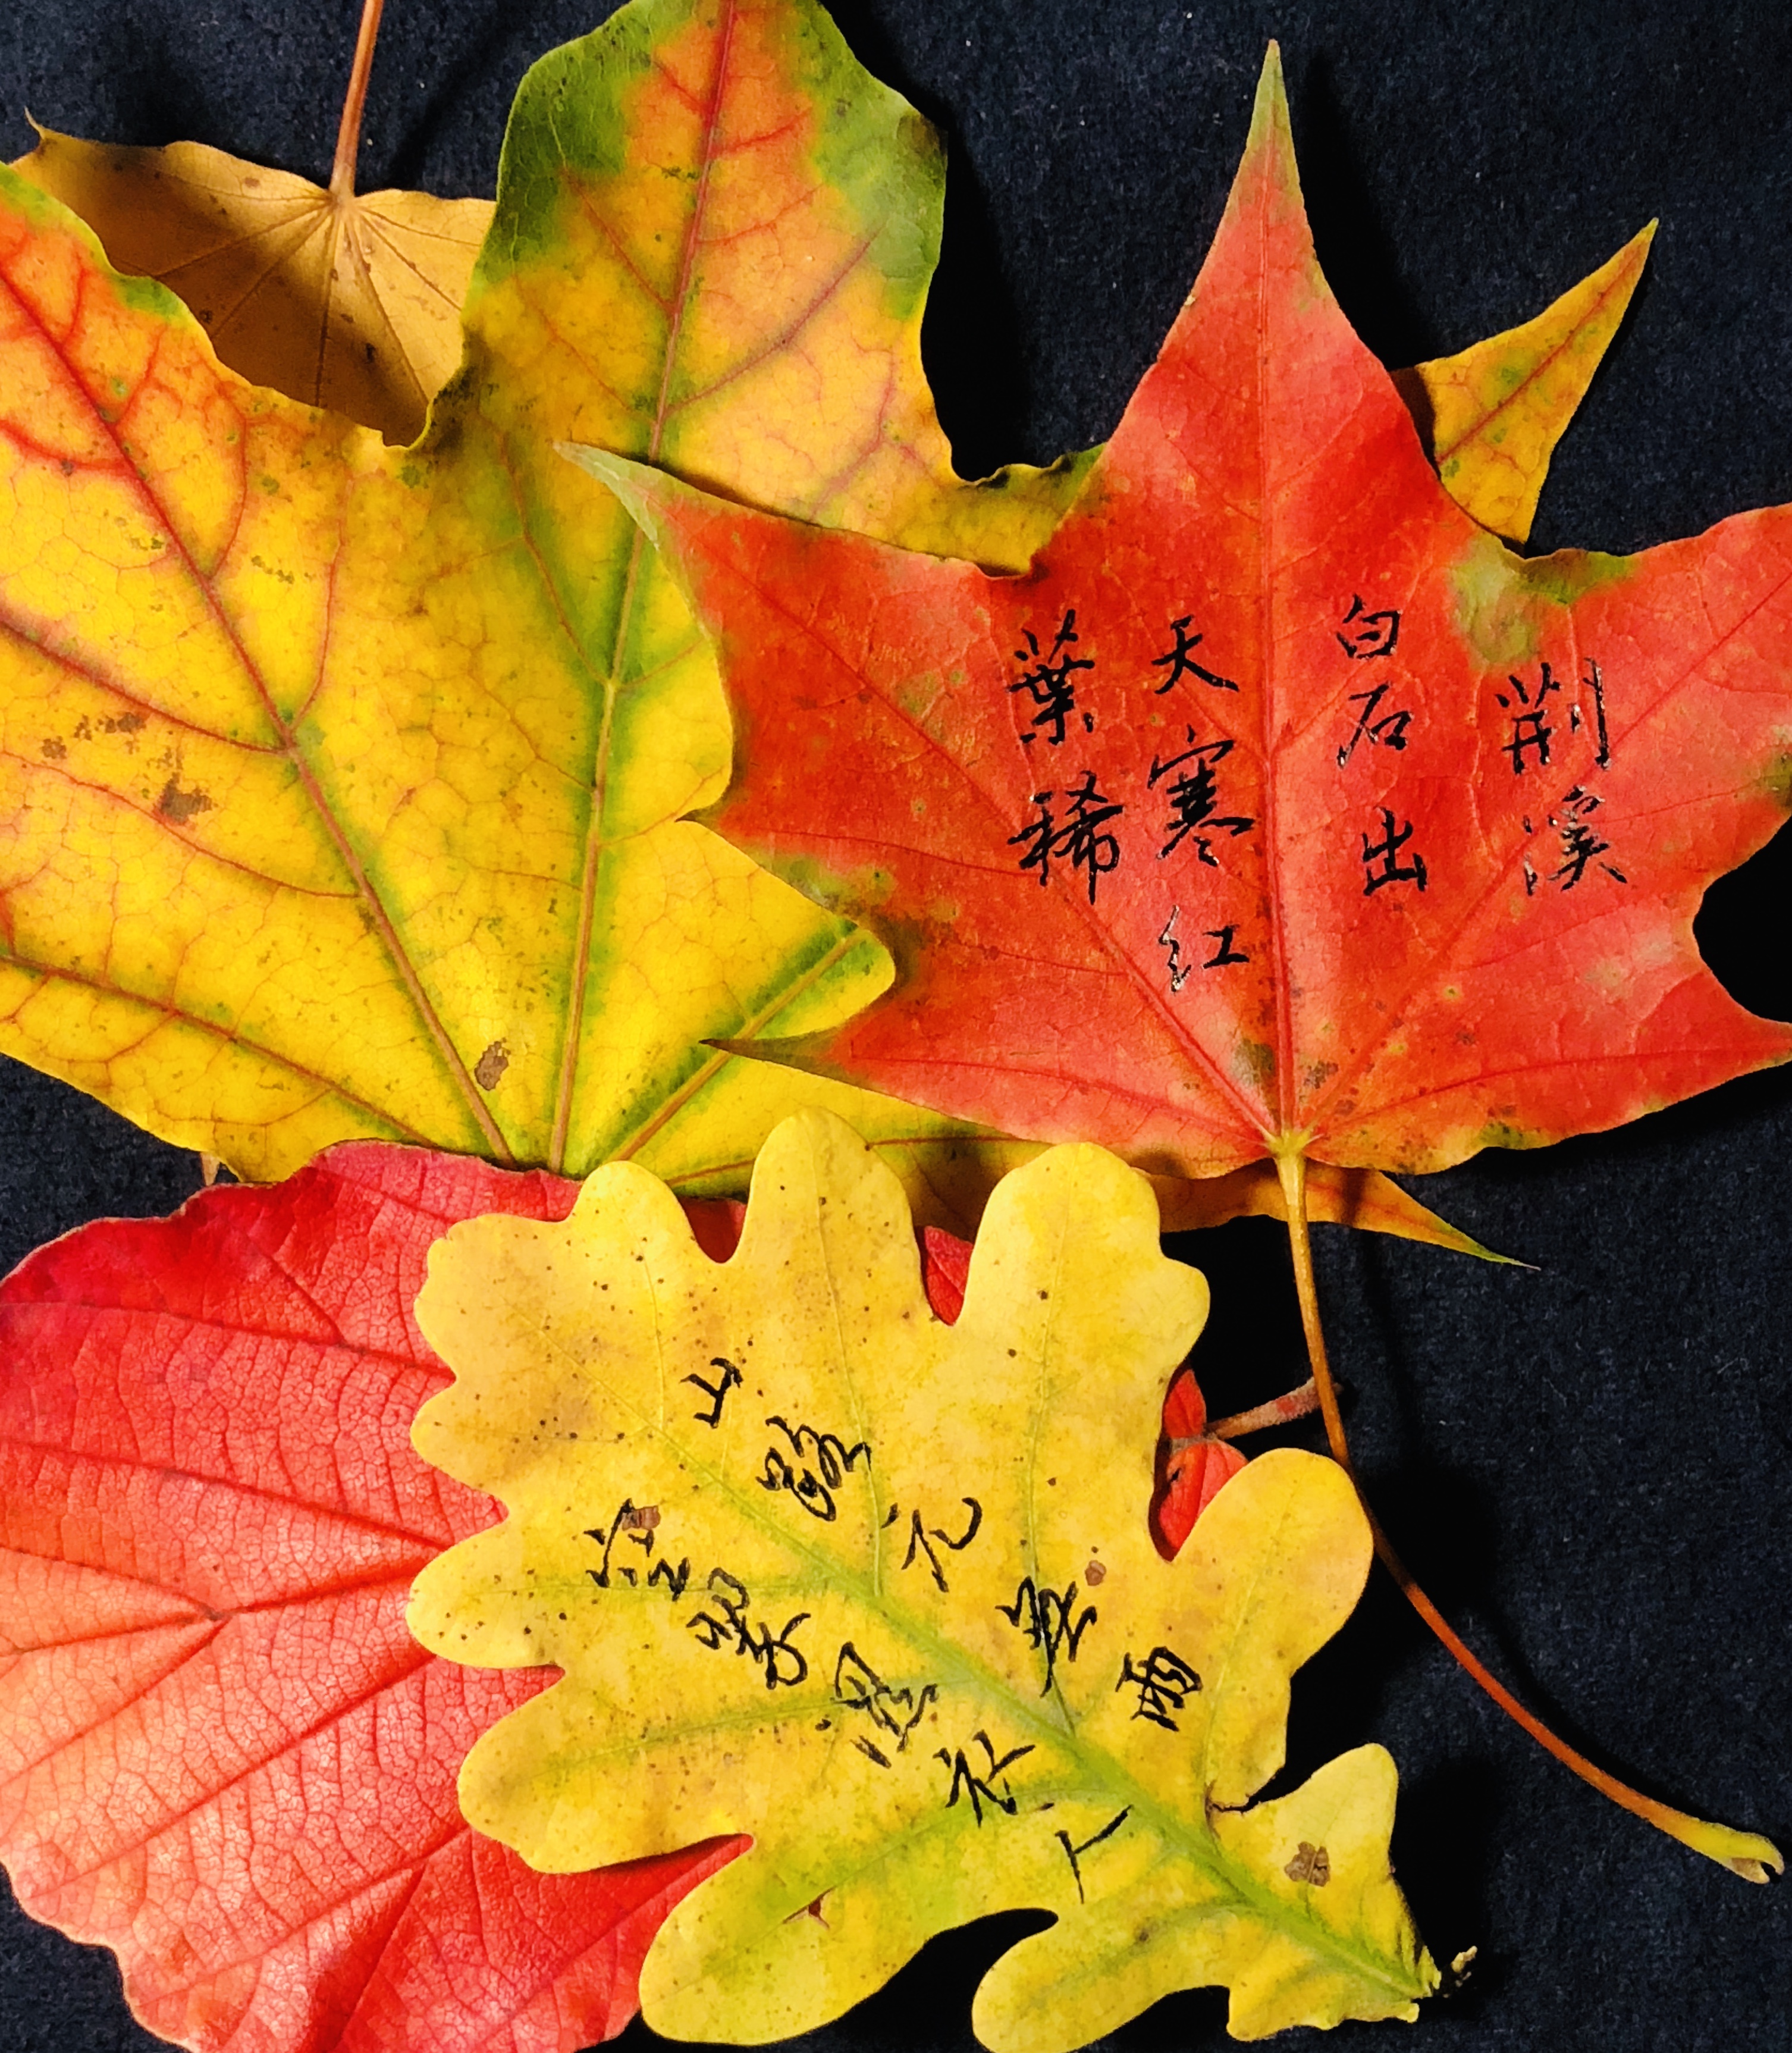 荆溪
白石出
天寒红
葉稀
山路元無雨
空翠湿衣人